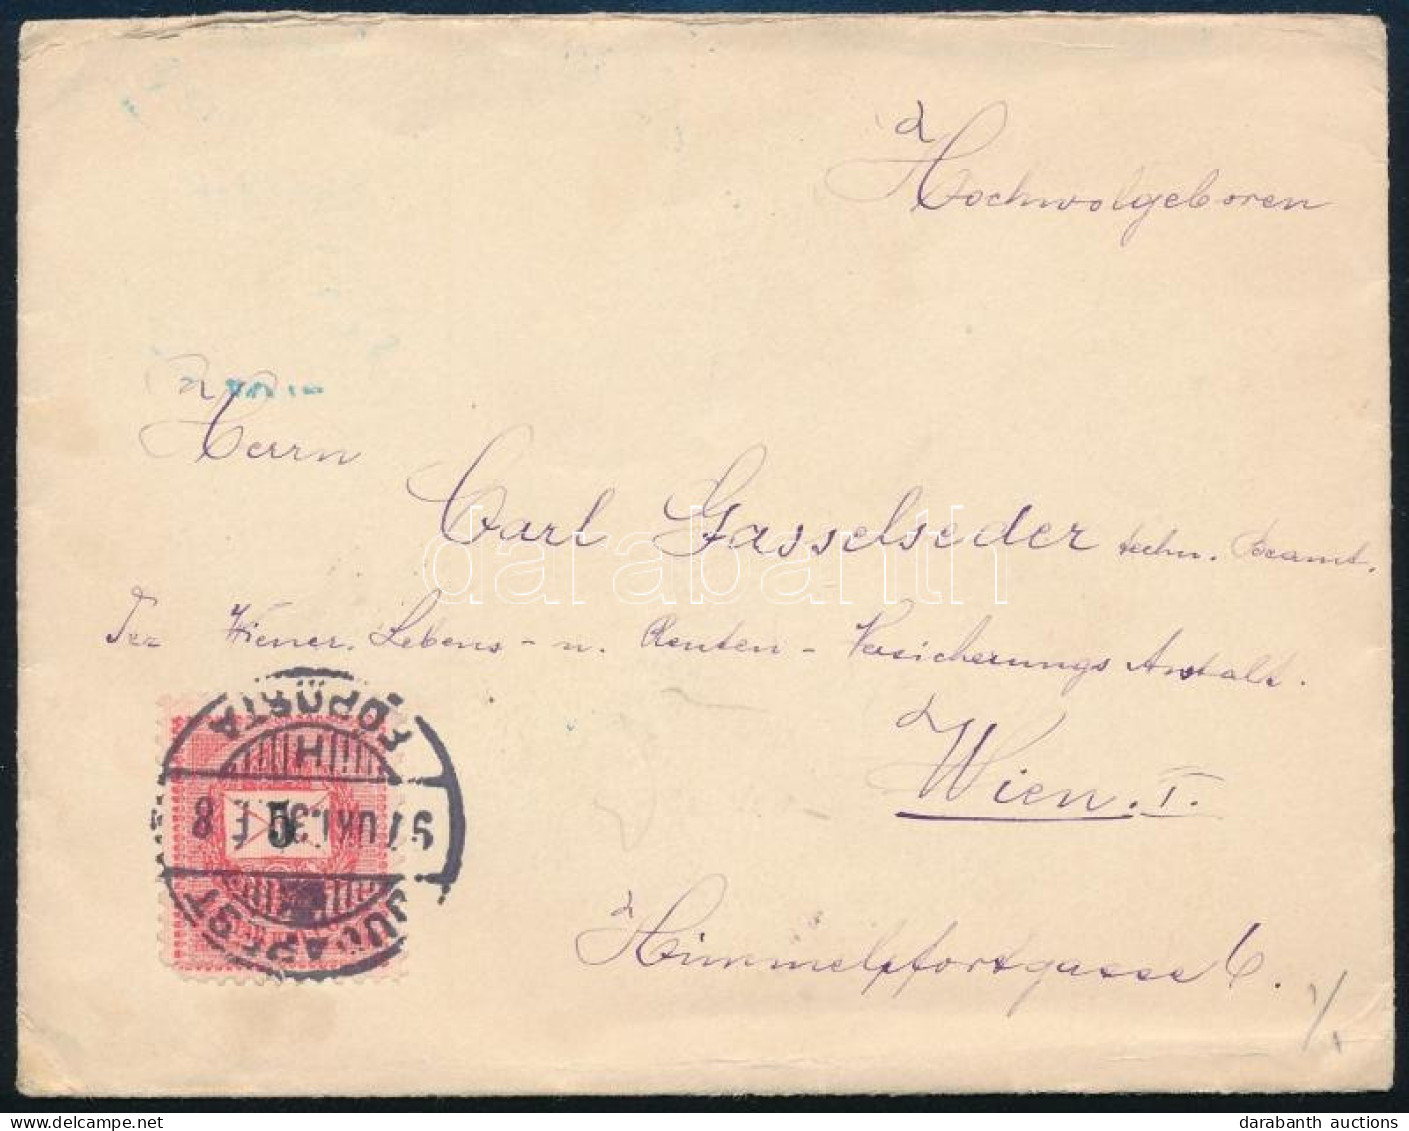 Hochwolgeboren
Herrn
Carl Gasselseder techn. Beamt.
Der Wiener. Lebens - u. Renten - Versicherungs Anstalt.
Wien. I.
Himmelpfortgasse 6.
BUDAPEST
FŐPOSTA
H
5
darabanth
darabanth auctions